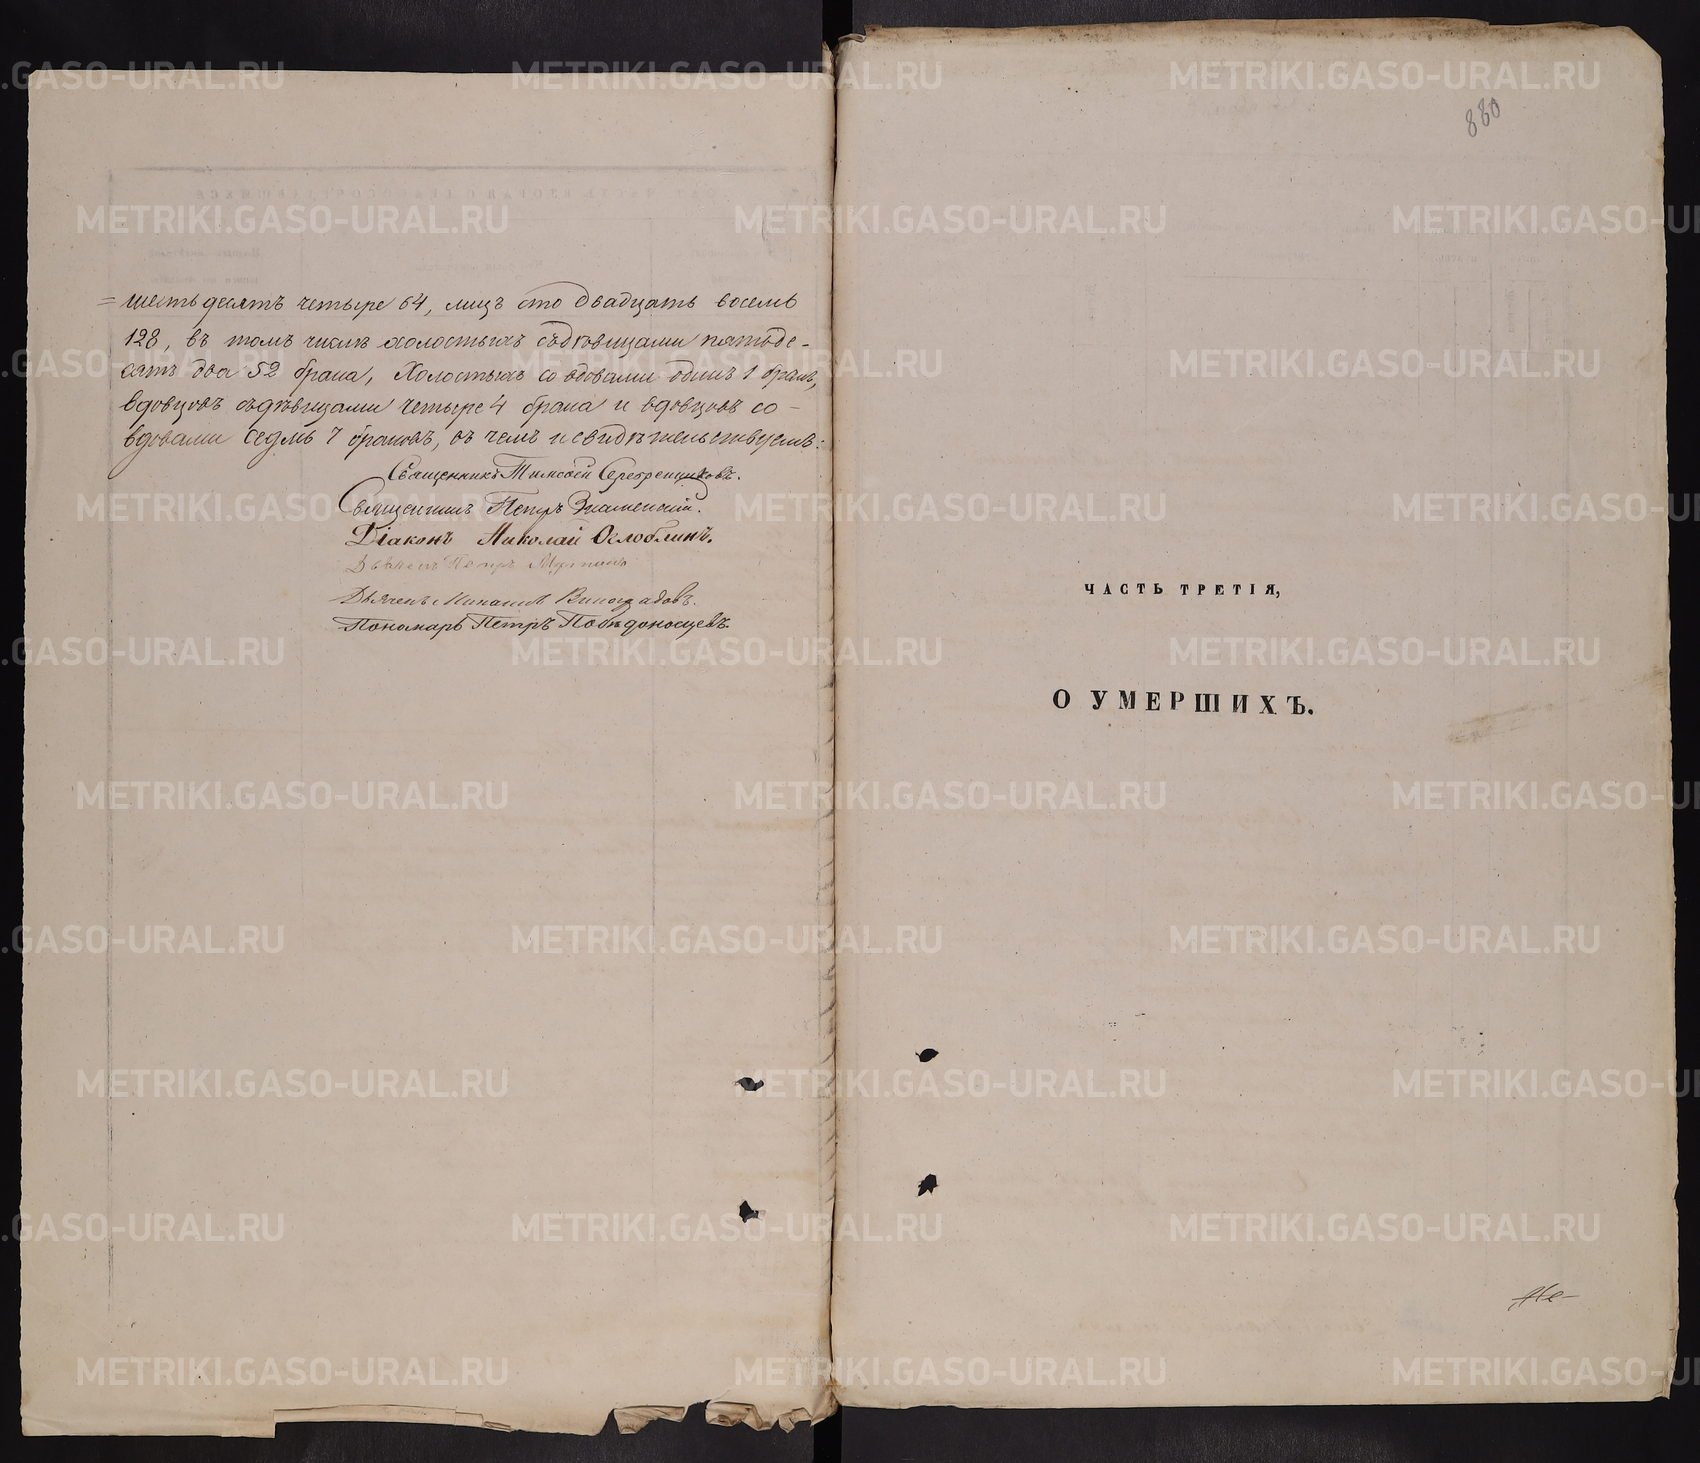 = шестьдесятъ четыре 64, лицъ сто двадцать восемь
128, въ томъ числѣ холостыхъ съдѣвицами пятьде-
сятъ два 52 брака, Холостыхъ со вдовами одинъ 1 бракъ,
вдовцовъ съдѣвицами четыре 4 брака и вдовцовъ со-
вдовами седмь 7 браковъ, въ чемъ и свидѣтельствуемъ:
Священникъ Тимофей Серебренниковъ.
Священникъ Петръ Знаменскій.
Діаконъ Николай Оглоблинъ.
Дьячекъ Петръ
Дьячекъ Виноградовъ.
Пономарь Петръ Побѣдоносцевъ.
880
ЧАСТЬ ТРЕТІЯ,
О УМЕРШИХЪ.
METRIKI.GASO-URAL.RU